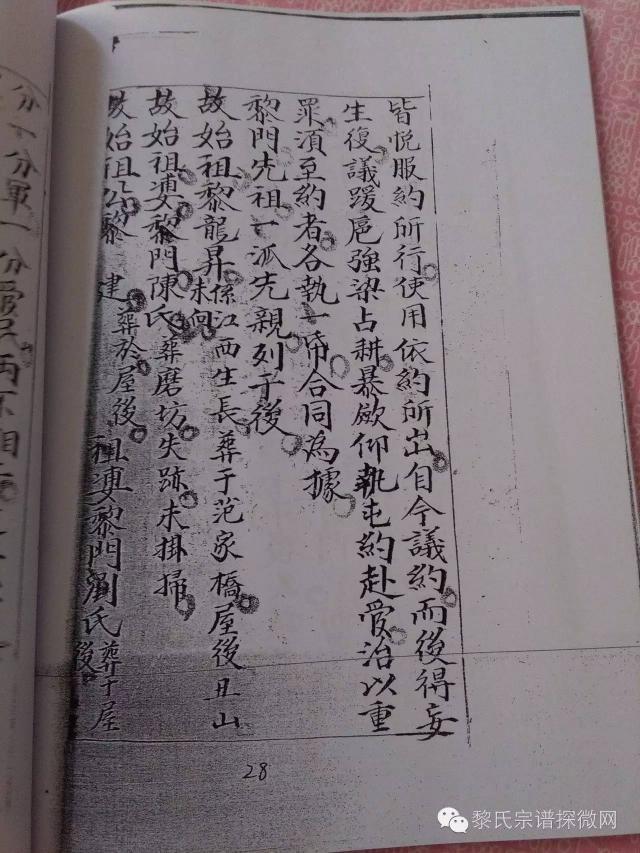 皆悦服約所行使用依約所出自今議約而後得妄
生復議踐扈強染占耕暴歛仰執屯約赴愛治以重
罪須至約者各執一帋合同為據
黎門先祖一派先親列于後
故始祖黎龍昇係江西生長葬于范家橋屋後丑山未向
故始祖婆黎門陳氏葬磨坊失跡未掛掃
故始祖公黎建葬於屋後祖婆黎門劉氏葬于屋後
分一分軍一份
28
黎氏宗谱探微网